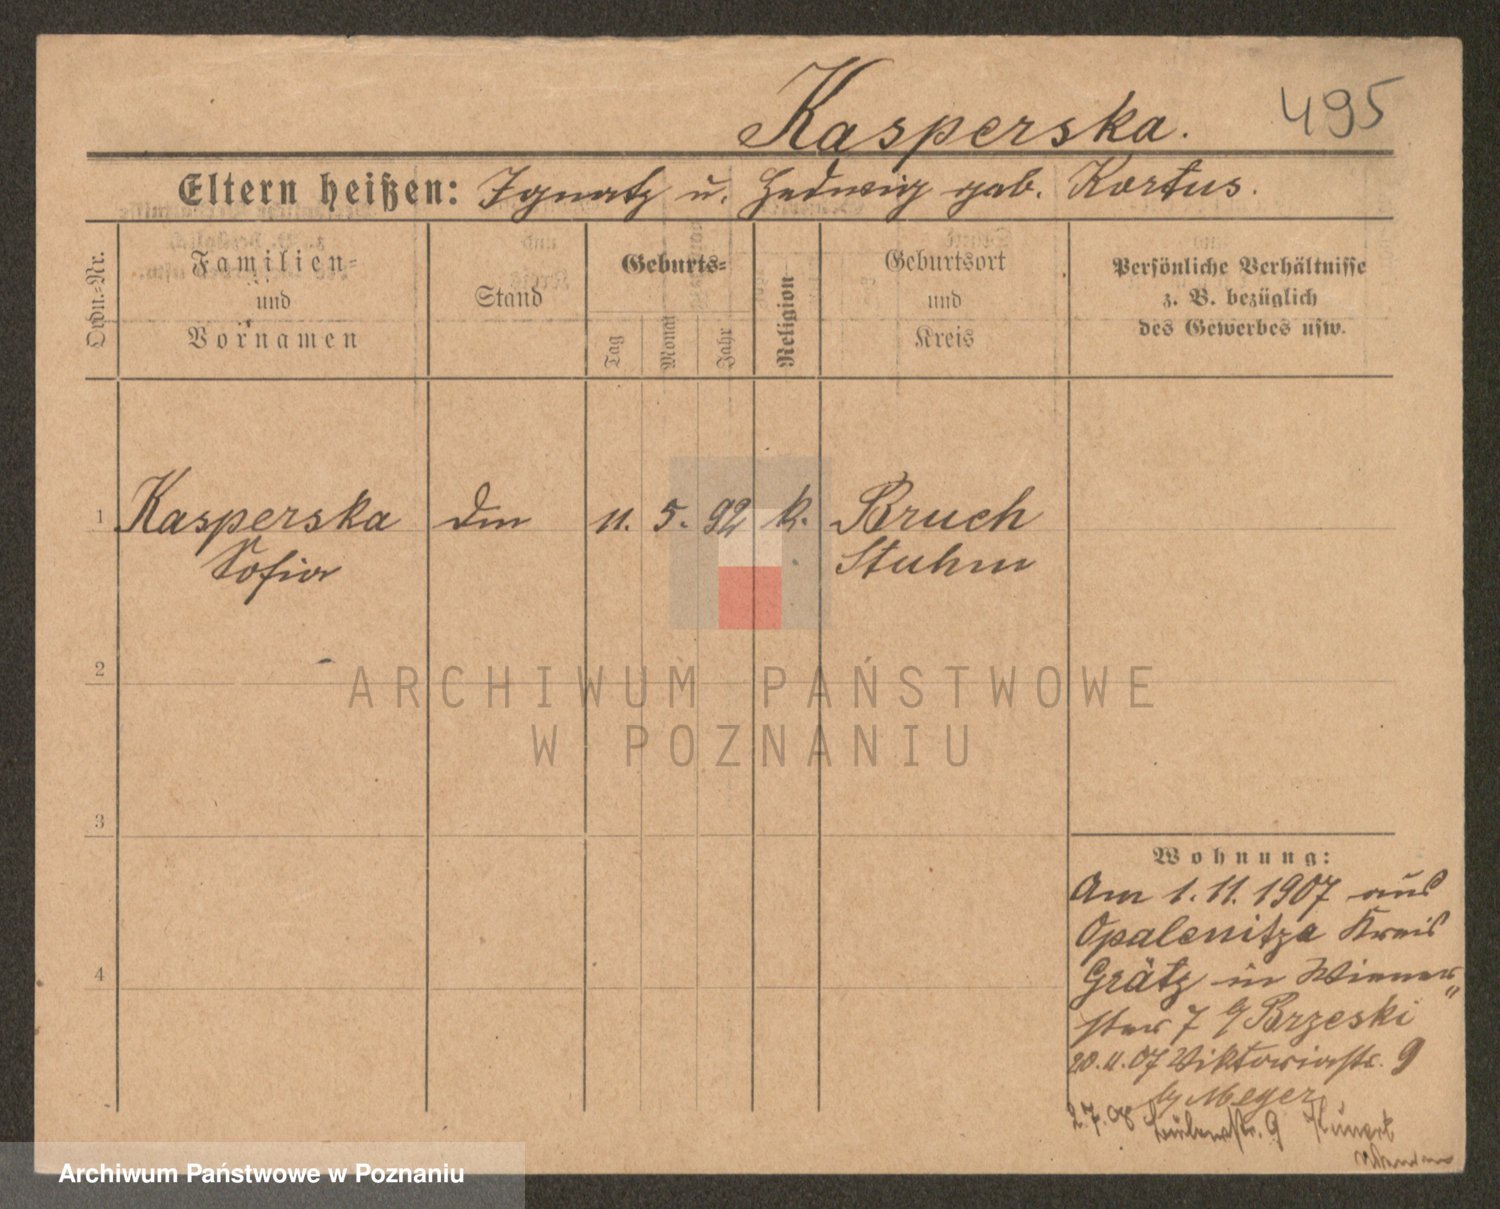 Kasperska.
495
Eltern heißen: Ignatz u. Hedwig geb. Kortus.
Ordn.-Nr.
Familien-
und
Vornamen
Stand
Geburts-
Tag
Monat
Jahr
Religion
Geburtsort
und
Kreis
Persönliche Verhältnisse
z. B. bezüglich
des Gewerbes usw.
1 Kasperska 11. 5. 92 k. Bruch
Sofia Stuhm
2
3
4
Wohnung:
Am 1.11.1907 aus
Opalenitza Kreis
Grätz in Wiener„
7 Brzeski
20.11.07 Viktoriastr. 9
Meyer
2.7.08 9
ARCHIWUM PAŃSTWOWE
W POZNANIU
Archiwum Państwowe w Poznaniu